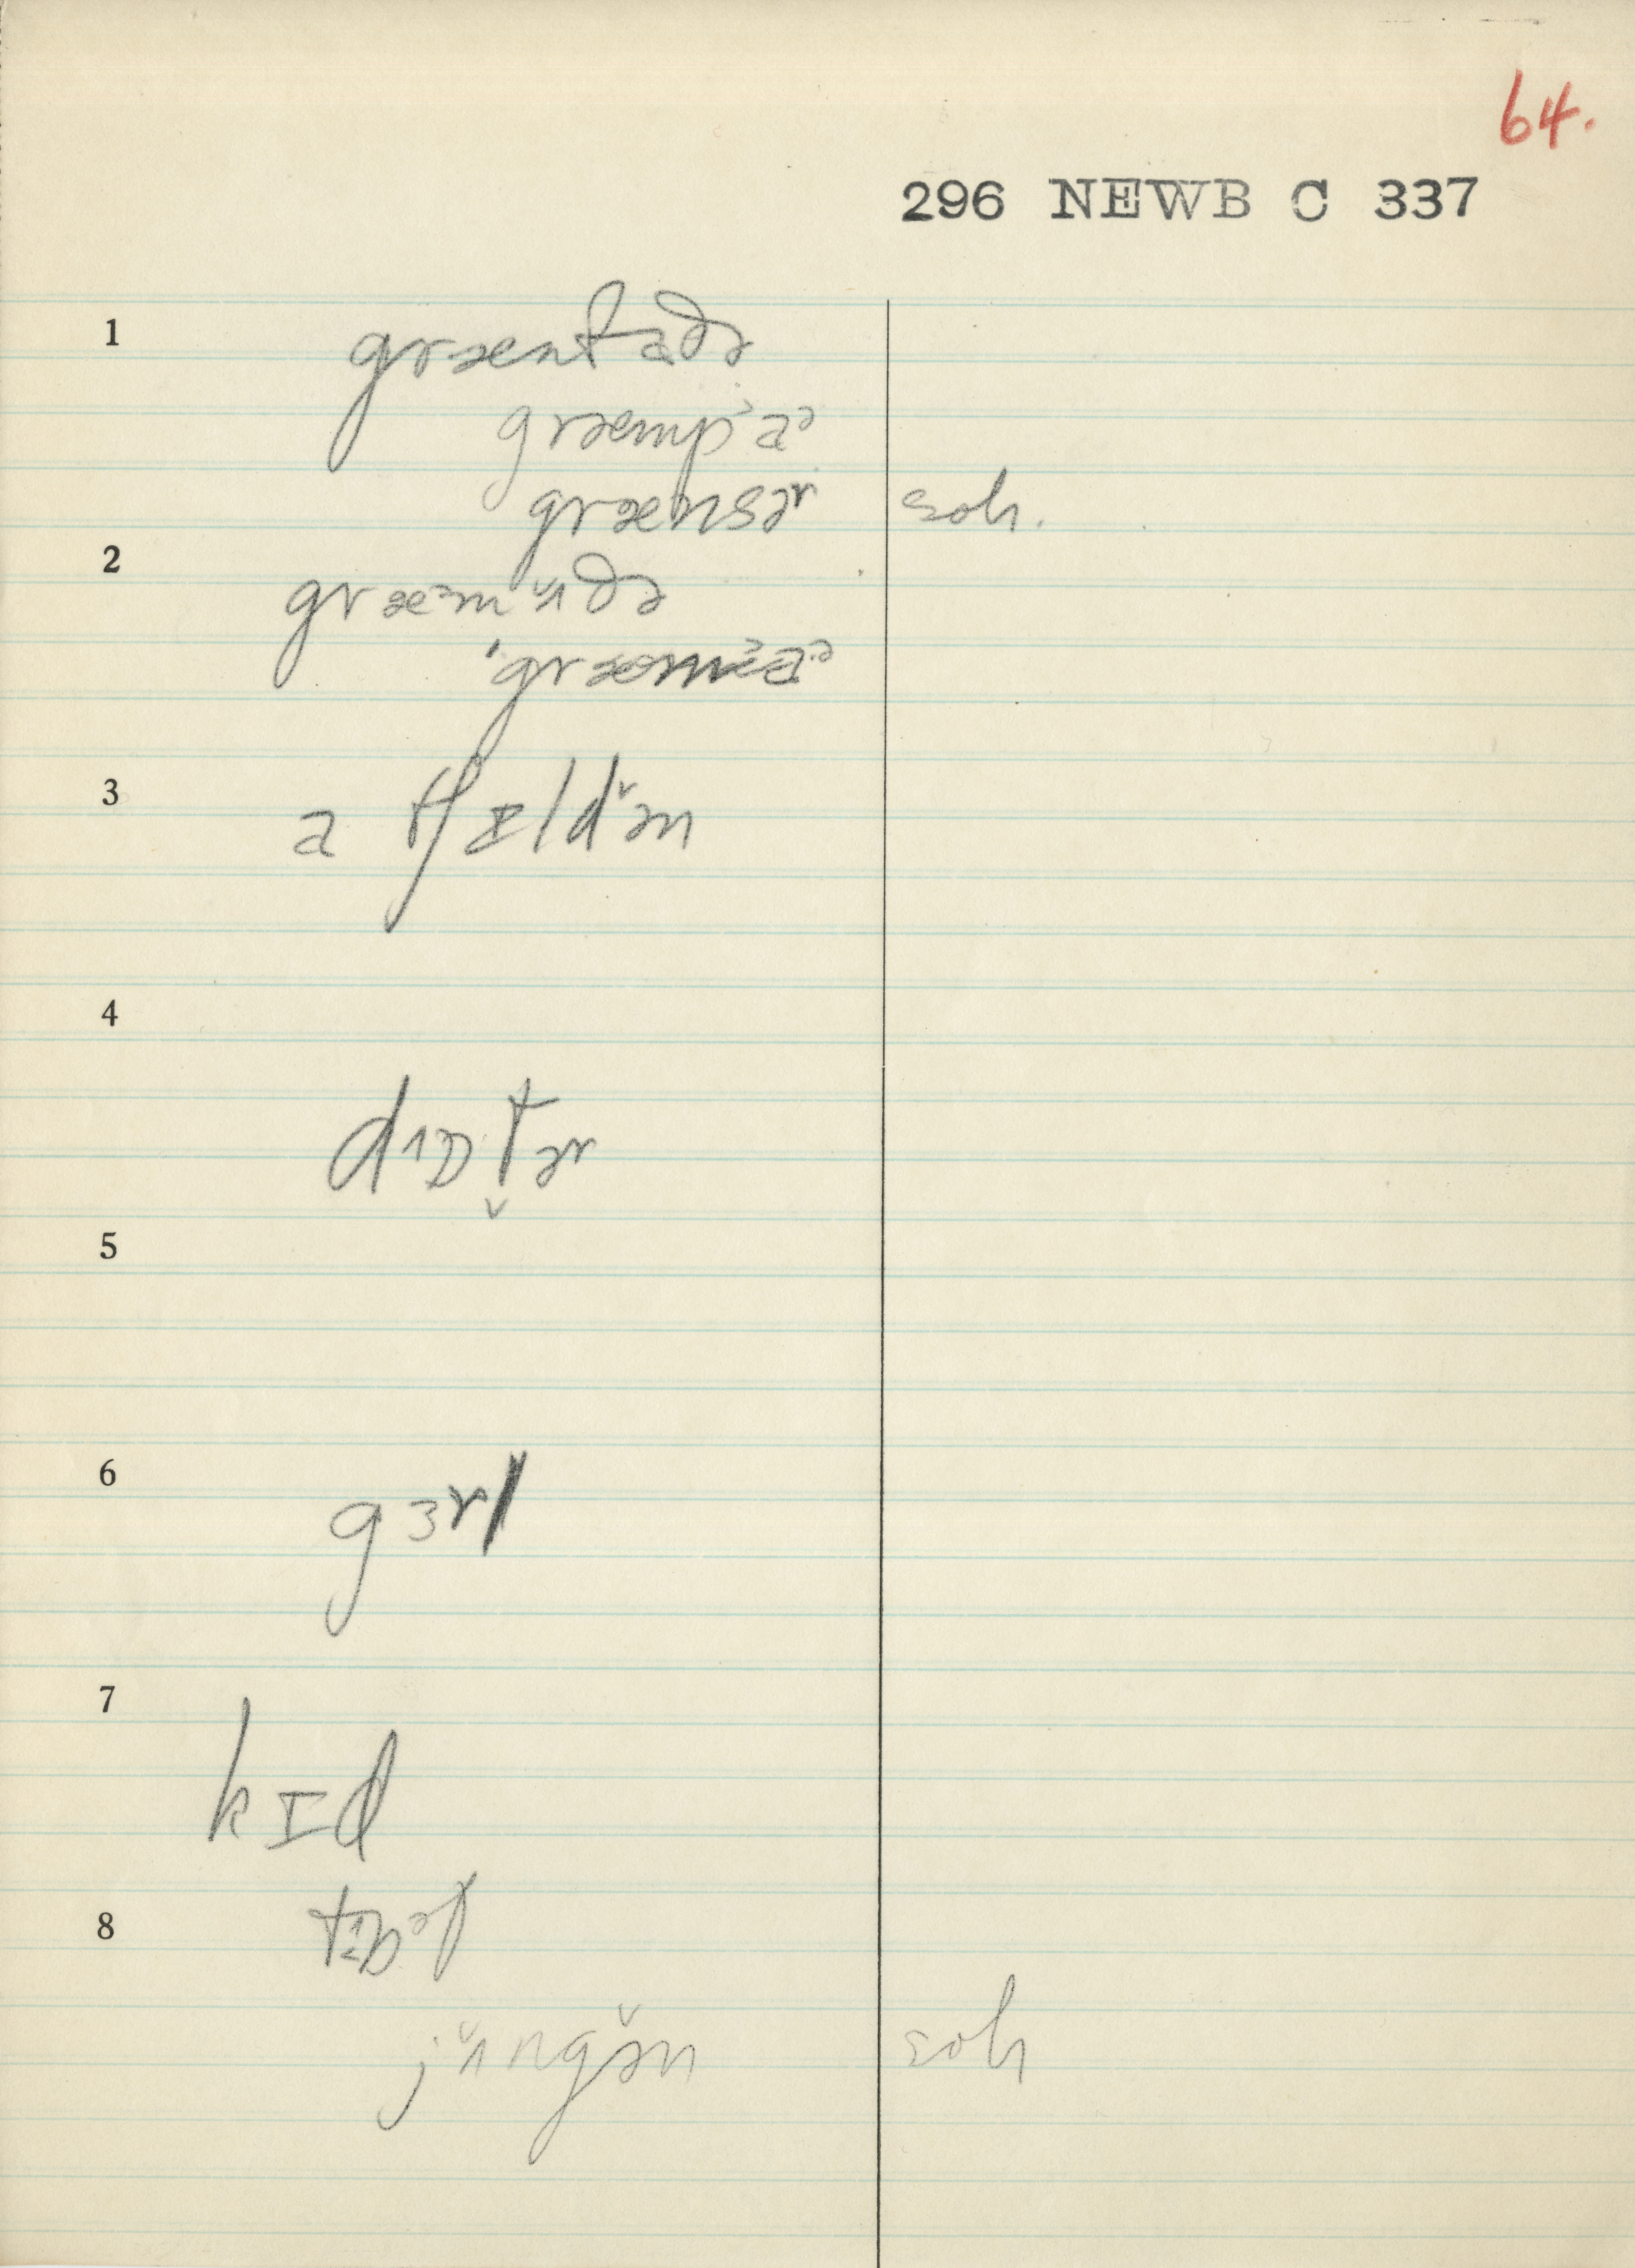 64.
296 NEWB C 337
1 græntfaðə
græmpaᵊ
grænsəʳ soh.
2 græᵊmʌ̆ðə
'græmaᵊ
3 a tʃɪldə̆n
4
dɒt̬ər
5
6 gɜrl
7 kɪd
8
jʌ̆ngə̆n soh